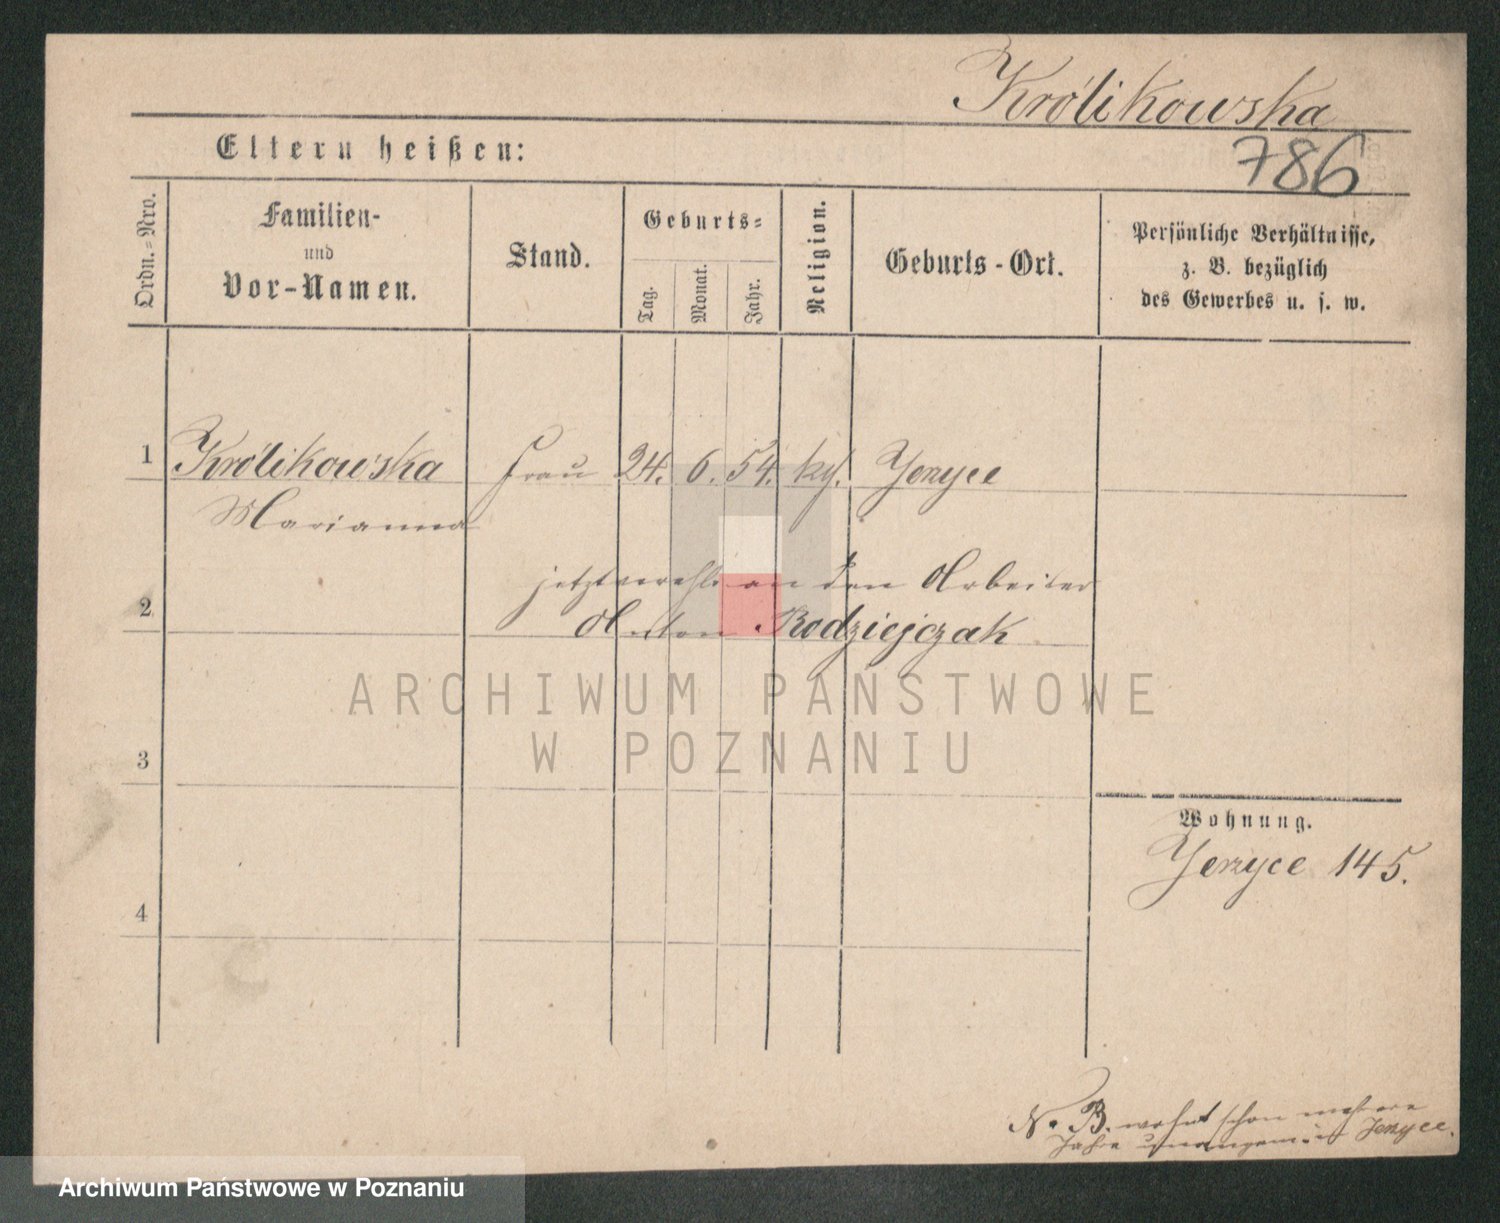 Królikowska
Eltern heißen:
786
Ordn.=Nro.
Familien-
und
Vor-Namen.
Stand.
Geburts=
Tag.
Monat.
Jahr.
Religion.
Geburts-Ort.
Persönliche Verhältnisse,
z. B. bezüglich
des Gewerbes u. s. w.
1 Królikowska Frau 24. 6. 54. kg. Jerzyce
Marianna
jetzt verehl. an den Arbeiter
2 Anton Rodziejczak
ARCHIWUM PAŃSTWOWE
W POZNANIU
3
Wohnung.
Jerzyce 145.
4
N. B. wohnt schon mehrere
Jahre unangem. in Jerzyce.
Archiwum Państwowe w Poznaniu